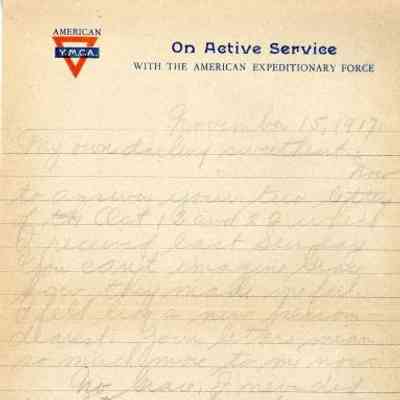 AMERICAN
Y.M.C.A.
On Active Service
WITH THE AMERICAN EXPEDITIONARY FORCE
November 15, 1917.
My own darling sweetheart:
Now
to answer your two letters
of Oct 12 and
I received last Sunday
You can't imagine
how they made me feel
I felt like a new person
dearest. Your letters mean
so much more to me now
No I never did